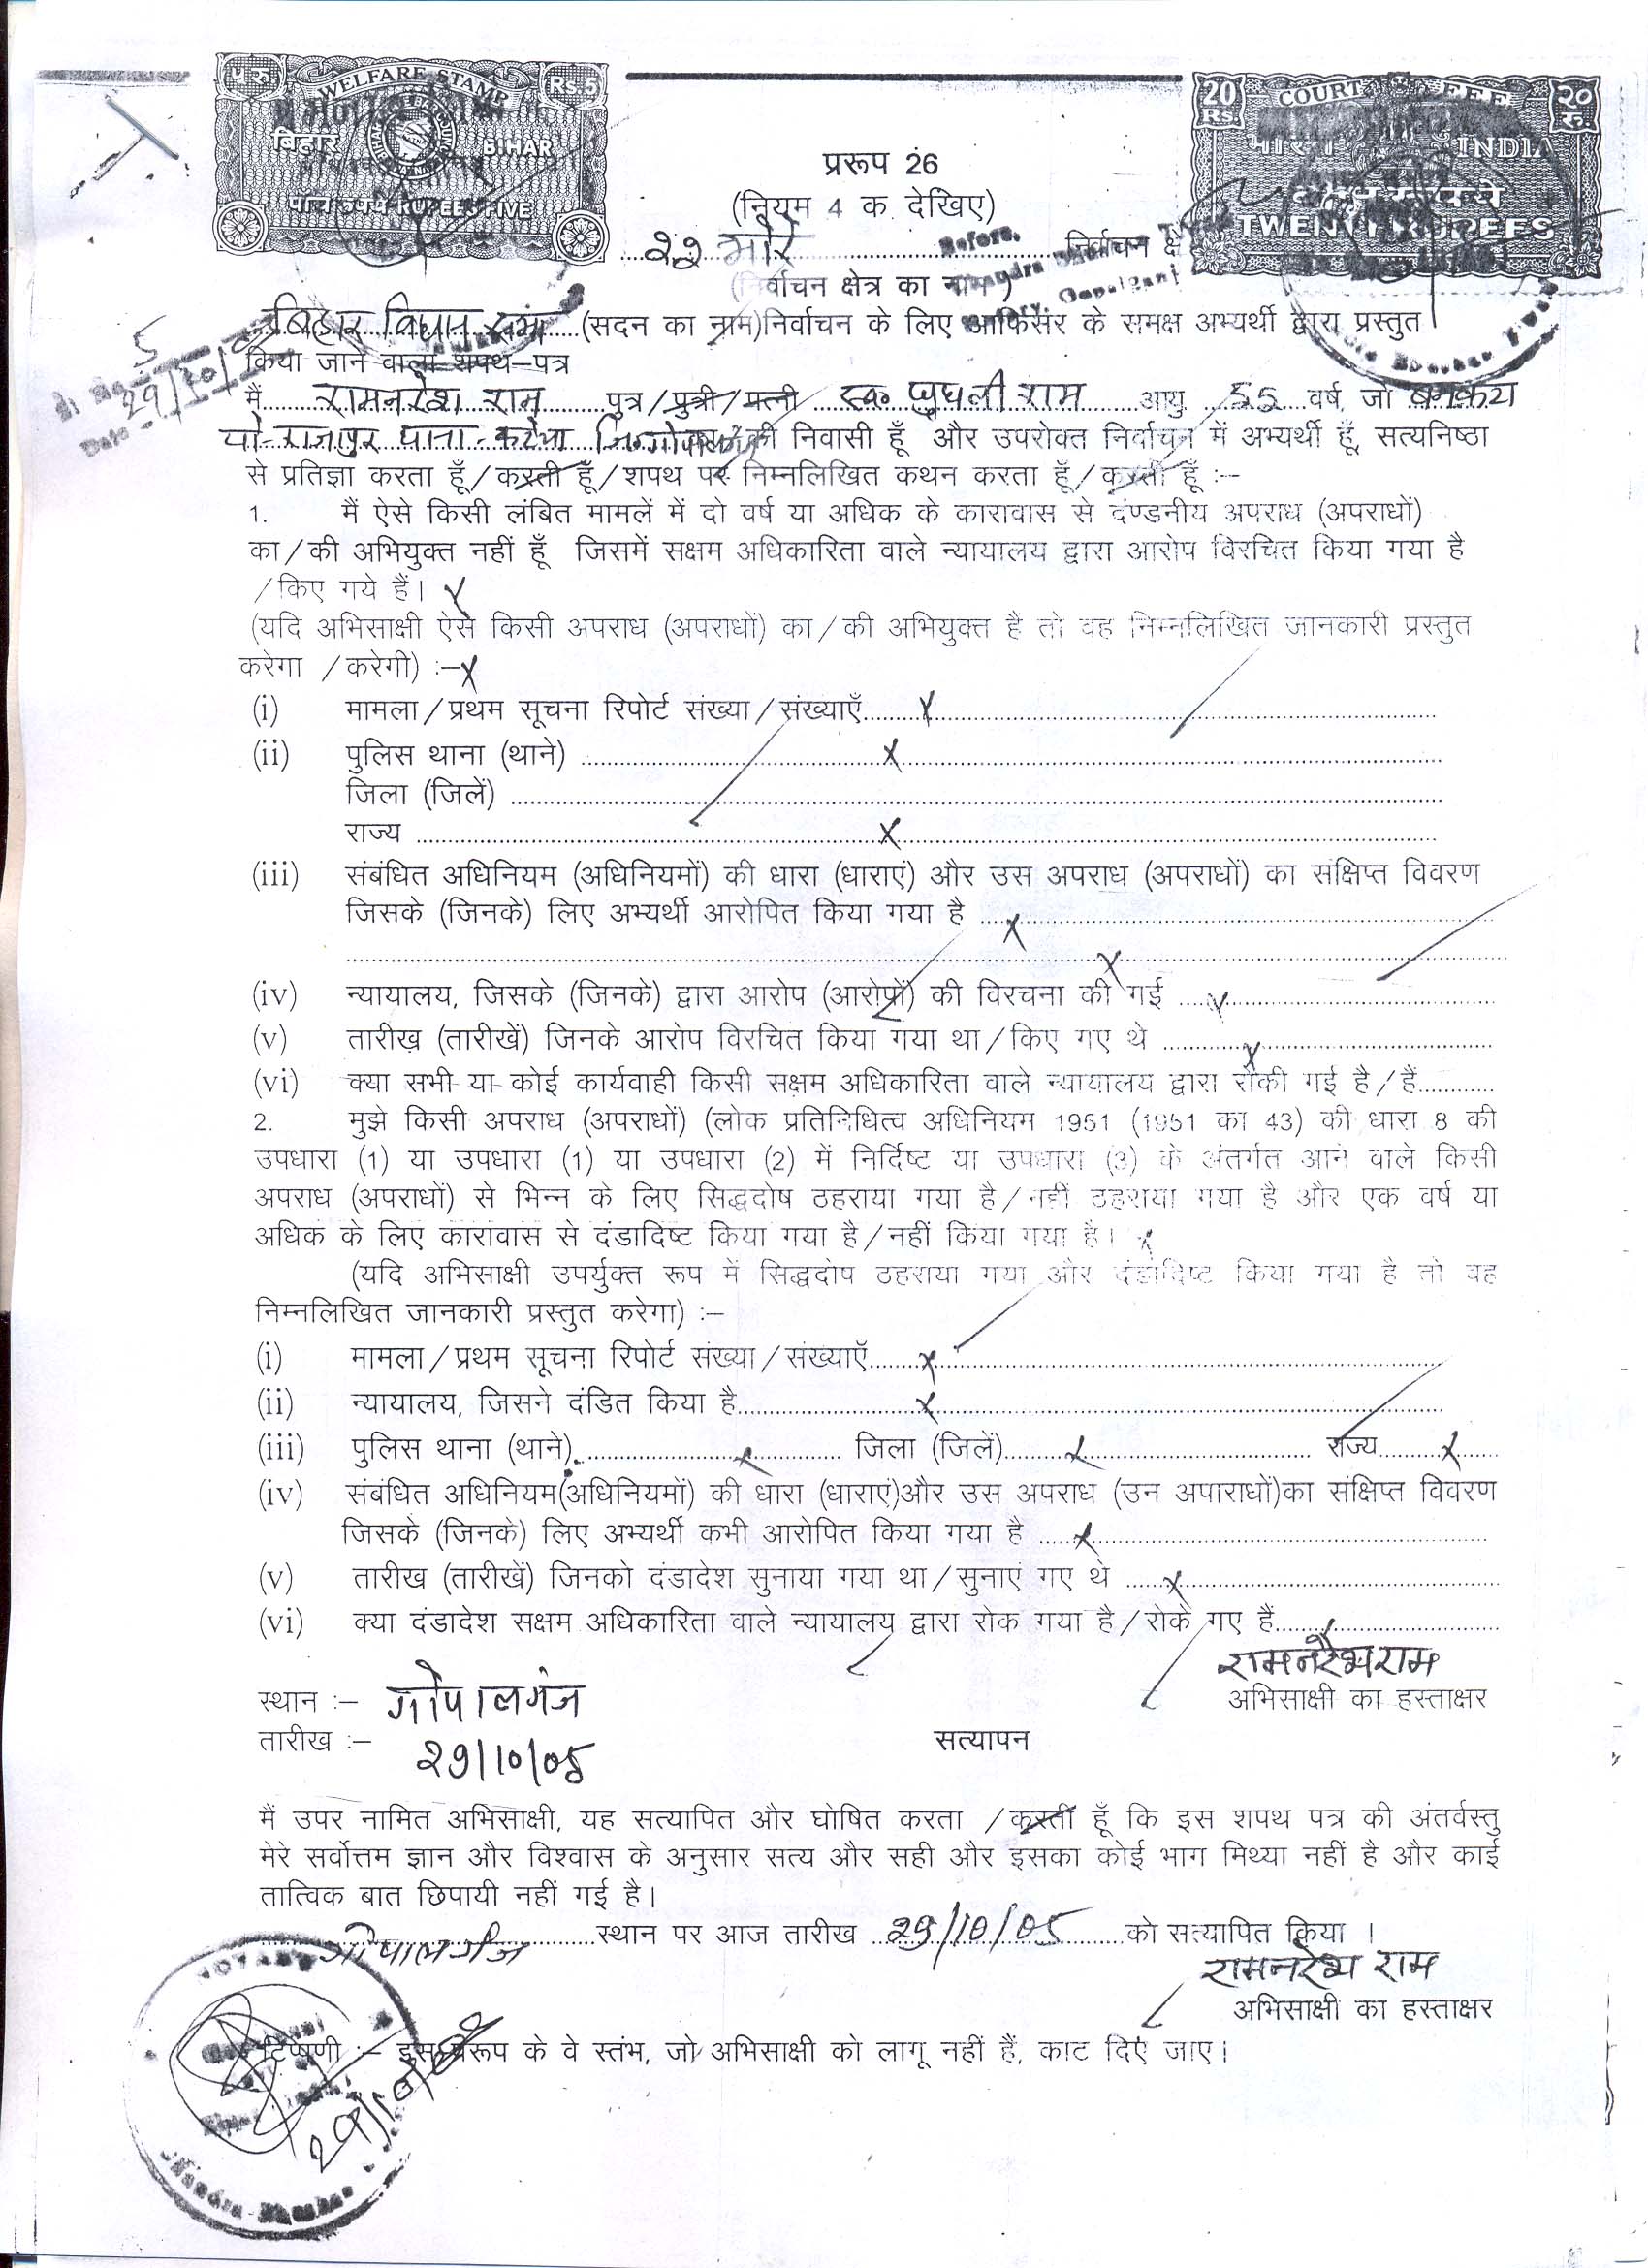 प.रु. WELFARE STAMP Rs.5
बिहार BIHAR
पाँच रुपये RUPEES FIVE
20 Rs. COURT FEE २० रु.
भारत INDIA
TWENTY RUPEES
प्ररूप 26
(नियम 4 क देखिए)
22 भोरे निर्वाचन क्षे
(निर्वाचन क्षेत्र का नाम)
बिहार विधान सभा (सदन का नाम)निर्वाचन के लिए आफिसर के समक्ष अभ्यर्थी द्वारा प्रस्तुत
किया जाने वाला शपथ-पत्र
मैं रामनरेश राम पुत्र/पुत्री/पत्नी स्व० घुघली राम आयु 55 वर्ष, जो
की निवासी हूँ और उपरोक्त निर्वाचन में अभ्यर्थी हूँ, सत्यनिष्ठा
से प्रतिज्ञा करता हूँ/करती हूँ/शपथ पर निम्नलिखित कथन करता हूँ/करती हूँ :–
1. मैं ऐसे किसी लंबित मामलें में दो वर्ष या अधिक के कारावास से दंण्डनीय अपराध (अपराधों)
का/की अभियुक्त नहीं हूँ जिसमें सक्षम अधिकारिता वाले न्यायालय द्वारा आरोप विरचित किया गया है
/किए गये हैं। x
(यदि अभिसाक्षी ऐसे किसी अपराध (अपराधों) का/की अभियुक्त है तो वह निम्नलिखित जानकारी प्रस्तुत
करेगा /करेगी) :– x
(i) मामला/प्रथम सूचना रिपोर्ट संख्या/संख्याएँ........x
(ii) पुलिस थाना (थाने) ........x
जिला (जिलें) ........
राज्य ........x
(iii) संबंधित अधिनियम (अधिनियमों) की धारा (धाराएं) और उस अपराध (अपराधों) का संक्षिप्त विवरण
जिसके (जिनके) लिए अभ्यर्थी आरोपित किया गया है ....x
x
(iv) न्यायालय, जिसके (जिनके) द्वारा आरोप (आरोपों) की विरचना की गई ....x
(v) तारीख (तारीखें) जिनके आरोप विरचित किया गया था/किए गए थे ........x
(vi) क्या सभी या कोई कार्यवाही किसी सक्षम अधिकारिता वाले न्यायालय द्वारा रोकी गई है/हैं............
2. मुझे किसी अपराध (अपराधों) (लोक प्रतिनिधित्व अधिनियम 1951 (1951 का 43) की धारा 8 की
उपधारा (1) या उपधारा (1) या उपधारा (2) में निर्दिष्ट या उपधारा (3) के अंतर्गत आने वाले किसी
अपराध (अपराधों) से भिन्न के लिए सिद्धदोष ठहराया गया है/नहीं ठहराया गया है और एक वर्ष या
अधिक के लिए कारावास से दंडादिष्ट किया गया है/नहीं किया गया है। x
(यदि अभिसाक्षी उपर्युक्त रूप में सिद्धदोष ठहराया गया और दंडादिष्ट किया गया है तो वह
निम्नलिखित जानकारी प्रस्तुत करेगा) :–
(i) मामला/प्रथम सूचना रिपोर्ट संख्या/संख्याएँ........x
(ii) न्यायालय, जिसने दंडित किया है........x
(iii) पुलिस थाना (थाने)........x........ जिला (जिलें)........x........ राज्य........x
(iv) संबंधित अधिनियम(अधिनियमों) की धारा (धाराएं)और उस अपराध (उन अपाराधों)का संक्षिप्त विवरण
जिसके (जिनके) लिए अभ्यर्थी कभी आरोपित किया गया है ....x
(v) तारीख (तारीखें) जिनको दंडादेश सुनाया गया था/सुनाएं गए थे ....x
(vi) क्या दंडादेश सक्षम अधिकारिता वाले न्यायालय द्वारा रोक गया है/रोके गए हैं........
रामनरेश राम
स्थान :– गोपालगंज अभिसाक्षी का हस्ताक्षर
तारीख :– 29/10/05 सत्यापन
मैं उपर नामित अभिसाक्षी, यह सत्यापित और घोषित करता /करती हूँ कि इस शपथ पत्र की अंतर्वस्तु
मेरे सर्वोत्तम ज्ञान और विश्वास के अनुसार सत्य और सही और इसका कोई भाग मिथ्या नहीं है और काई
तात्विक बात छिपायी नहीं गई है।
गोपालगंज स्थान पर आज तारीख 29/10/05 को सत्यापित किया ।
रामनरेश राम
अभिसाक्षी का हस्ताक्षर
टिप्पणी :– इस प्ररूप के वे स्तंभ, जो अभिसाक्षी को लागू नहीं हैं, काट दिए जाए।
NOTARY